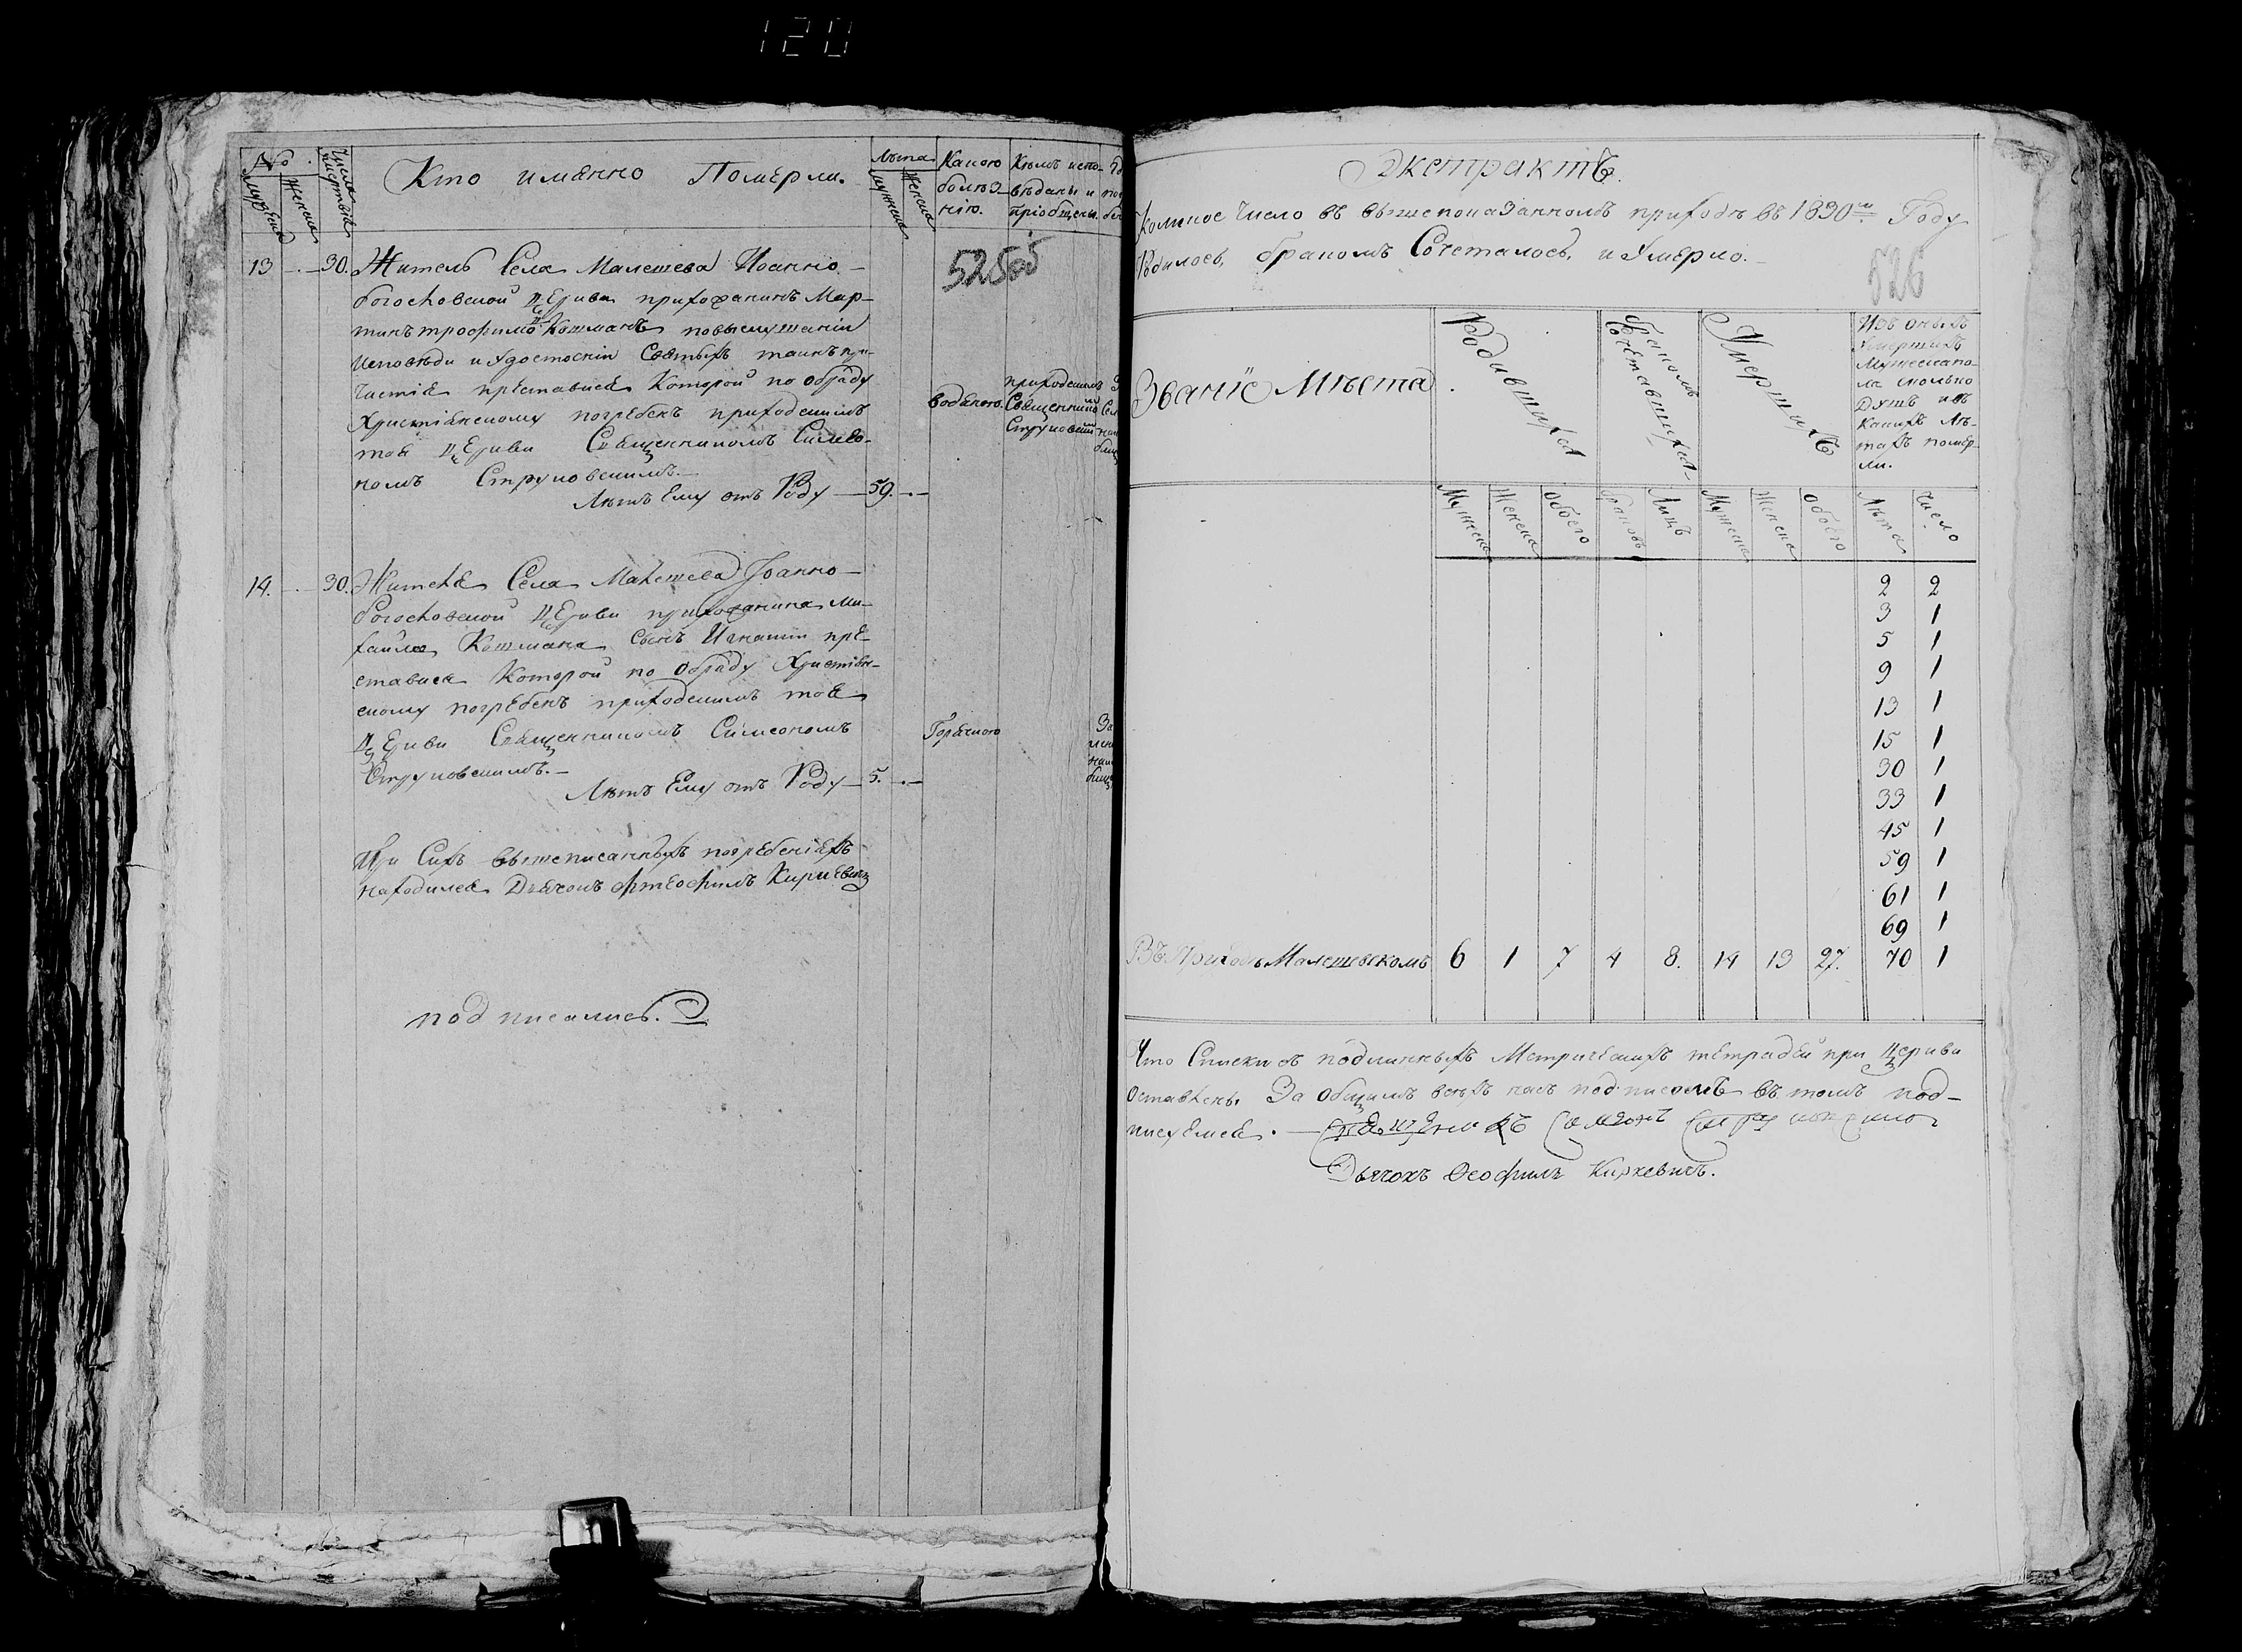 120
№
Мужеска
Женска
Числа смертвія
Кто имѧнно Помєрли.
Лѣта
Мужеска
Женска
Какою болѣз-
нію.
Кѣмъ испо-
вѣданы и
пріобщены.
525
13 — 30. Житель Села Малешева Іоанно-
богословской Цєркви прихожанинъ Мар-
тинъ трофимо Кошманъ повыслушаніи
исповѣди и удостоєніи Свѧтыхъ таинъ при-
частіѧ прєстависѧ Которой по обрѧду
Христіѧнскому погрєбєнъ приходскимъ
тоѧ Цєркви Свѧщєнникомъ Симєо-
номъ Струковскимъ.—
Лѣтъ Єму отъ Роду — 59. —
водѧною.
приходскимъ
Свѧщенникомъ
Струковским
14. — 30. Житєлѧ Села Малешева Іоанно-
богословской Цєркви прихожанина ми-
хайла Кошмана сынъ Игнатій прє-
стависѧ Которой по обрѧду Христіѧн-
скому погрєбєнъ приходскимъ тоѧ
Цєркви Свѧщєнникомъ Симєономъ
Струковскимъ.—
Лѣтъ Єму отъ Роду — 5. —
Горѧчкою
При Сихъ вышеписанныхъ погрєбєніѧхъ
находилсѧ Дьѧчокъ Фтєофилъ Киркєвичъ
подписались.
Экстрактъ.
Коликое Число въ вышепоказанномъ приходѣ въ 1830м Году
Родилось, бракомъ Сочеталось, и Умєрло.
526
Званіе Мѣста.
Родившихся
бракомъ Сочєтавшихся
Умєршихъ
Изъ оныхъ
Умершихъ
Мужеска по-
ла сколько
Душъ и въ
какихъ лѣ-
тахъ помєр-
ли.
Мужеска
Женска
Обоєго
браковъ
Лицъ
Мужеска
Женска
Обоєго
Лѣта
Число
2 2
3 1
5 1
9 1
13 1
15 1
30 1
33 1
45 1
59 1
61 1
69 1
Въ Приходѣ Малешевскомъ 6 1 7 4 8. 14 13 27. 70 1
Что Списки съ подлинныхъ Мєтричєскихъ тєтрадєй при Цєркви
оставлєны За общимъ всѣхъ насъ подписомъ въ томъ под-
писуємсѧ. — Свѧщєникъ Симеонъ Струковскій
Дьячокъ Ѳеофилъ Киркевичъ.